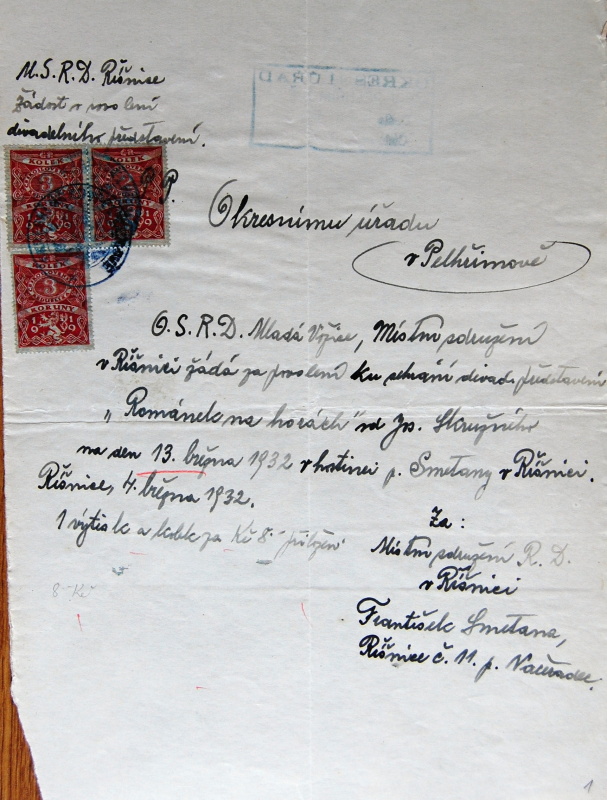 M.S.R.D. Řišnice
žádost o povolení
divadelního představení.
KOLEK
3
KORUNY
1919
KOLEK
KORUNY
19
KOLEK
3
KORUNY
1919
P.
OKRES ÚŘAD
Okresnímu úřadu
v Pelhřimově
O.S.R.D. Mladá Vožice, Místní sdružení
v Řišnici žádá za povolení ku sehrání divad. představení
„Románek na horách" od Jos. Skružného
na den 13. března 1932 v hostinci p. Smetany v Řišnici.
Řišnice, 4. března 1932.
1 výtisk a kolek za Kč 8- přiložen
Za:
Místní sdružení R. D.
v Řišnici
8 - Kč
František Smetana,
Řišnice č. 11. p. Načeradec.
1